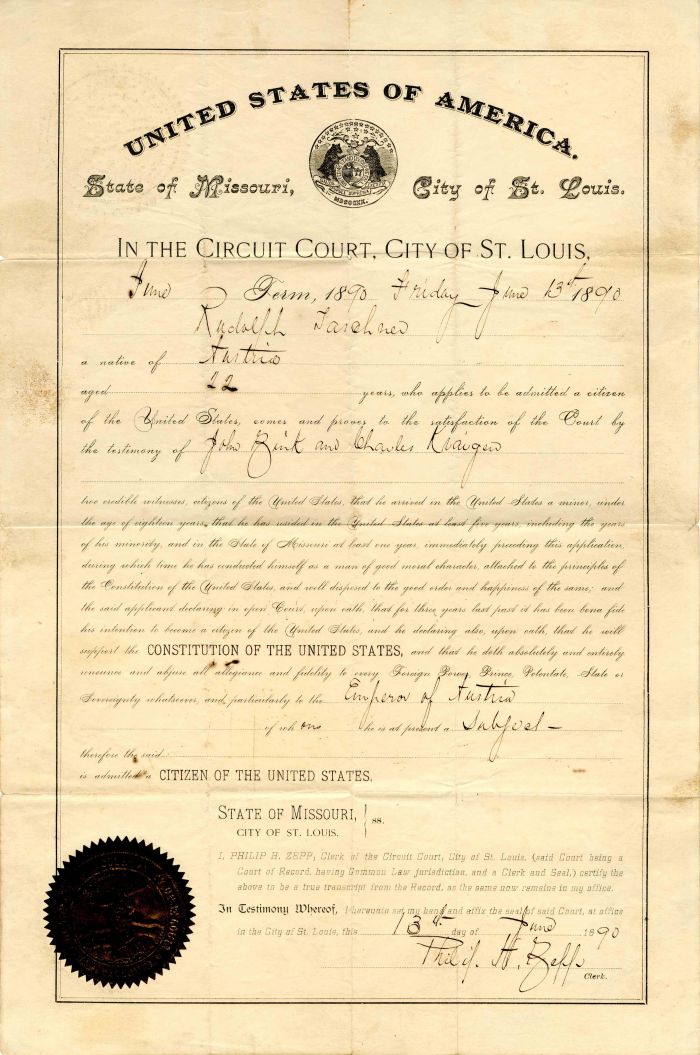 UNITED STATES OF AMERICA.
State of Missouri, City of St. Louis.
MDCCCXX.
IN THE CIRCUIT COURT, CITY OF ST. LOUIS,
June Term, 1890 Friday June 13th 1890
Rudolph Taschner
a native of Austria
aged 22 years, who applies to be admitted a citizen
of the United States, comes and proves to the satisfaction of the Court by
the testimony of John Zink and Charles Kraigen
two credible witnesses, citizens of the United States, that he arrived in the United States a minor, under
the age of eighteen years, that he has resided in the United States at least five years, including the years
of his minority, and in the State of Missouri at least one year, immediately preceding this application,
during which time he has conducted himself as a man of good moral character, attached to the principles of
the Constitution of the United States, and well disposed to the good order and happiness of the same; and
the said applicant declaring in open Court, upon oath, that for three years last past it has been bona fide
his intention to become a citizen of the United States, and he declaring also, upon oath, that he will
support the CONSTITUTION OF THE UNITED STATES, and that he doth absolutely and entirely
renounce and abjure all allegiance and fidelity to every Foreign Power, Prince, Potentate, State or
Sovereignty whatsoever, and, particularly to the Emperor of Austria
of whom he is at present a Subject
therefore the said
is admitted a CITIZEN OF THE UNITED STATES.
STATE OF MISSOURI, } ss.
CITY OF ST. LOUIS.
I, PHILIP H. ZEPP, Clerk of the Circuit Court, City of St. Louis, (said Court being a
Court of Record, having Common Law jurisdiction, and a Clerk and Seal,) certify the
above to be a true transcript from the Record, as the same now remains in my office.
In Testimony Whereof, I hereunto set my hand and affix the seal of said Court, at office
in the City of St. Louis, this 13th day of June 1890
Philip H. Zepp
Clerk.